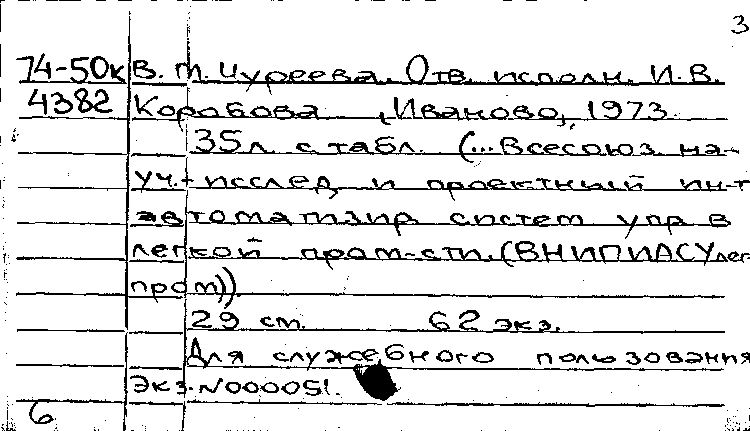 3
74-50к В. М. Чуреева. Отв. исполн. И.В.
4382 Коробова. Иваново, 1973.
35л. с табл. (...Всесоюз. на-
уч.-исслед. и проектный ин-т
автоматизир. систем упр. в
легкой пром-сти. (ВНИПИАСУлег
пром))
29 см. 62 экз.
Для служебного пользования
Экз. N000051.
6